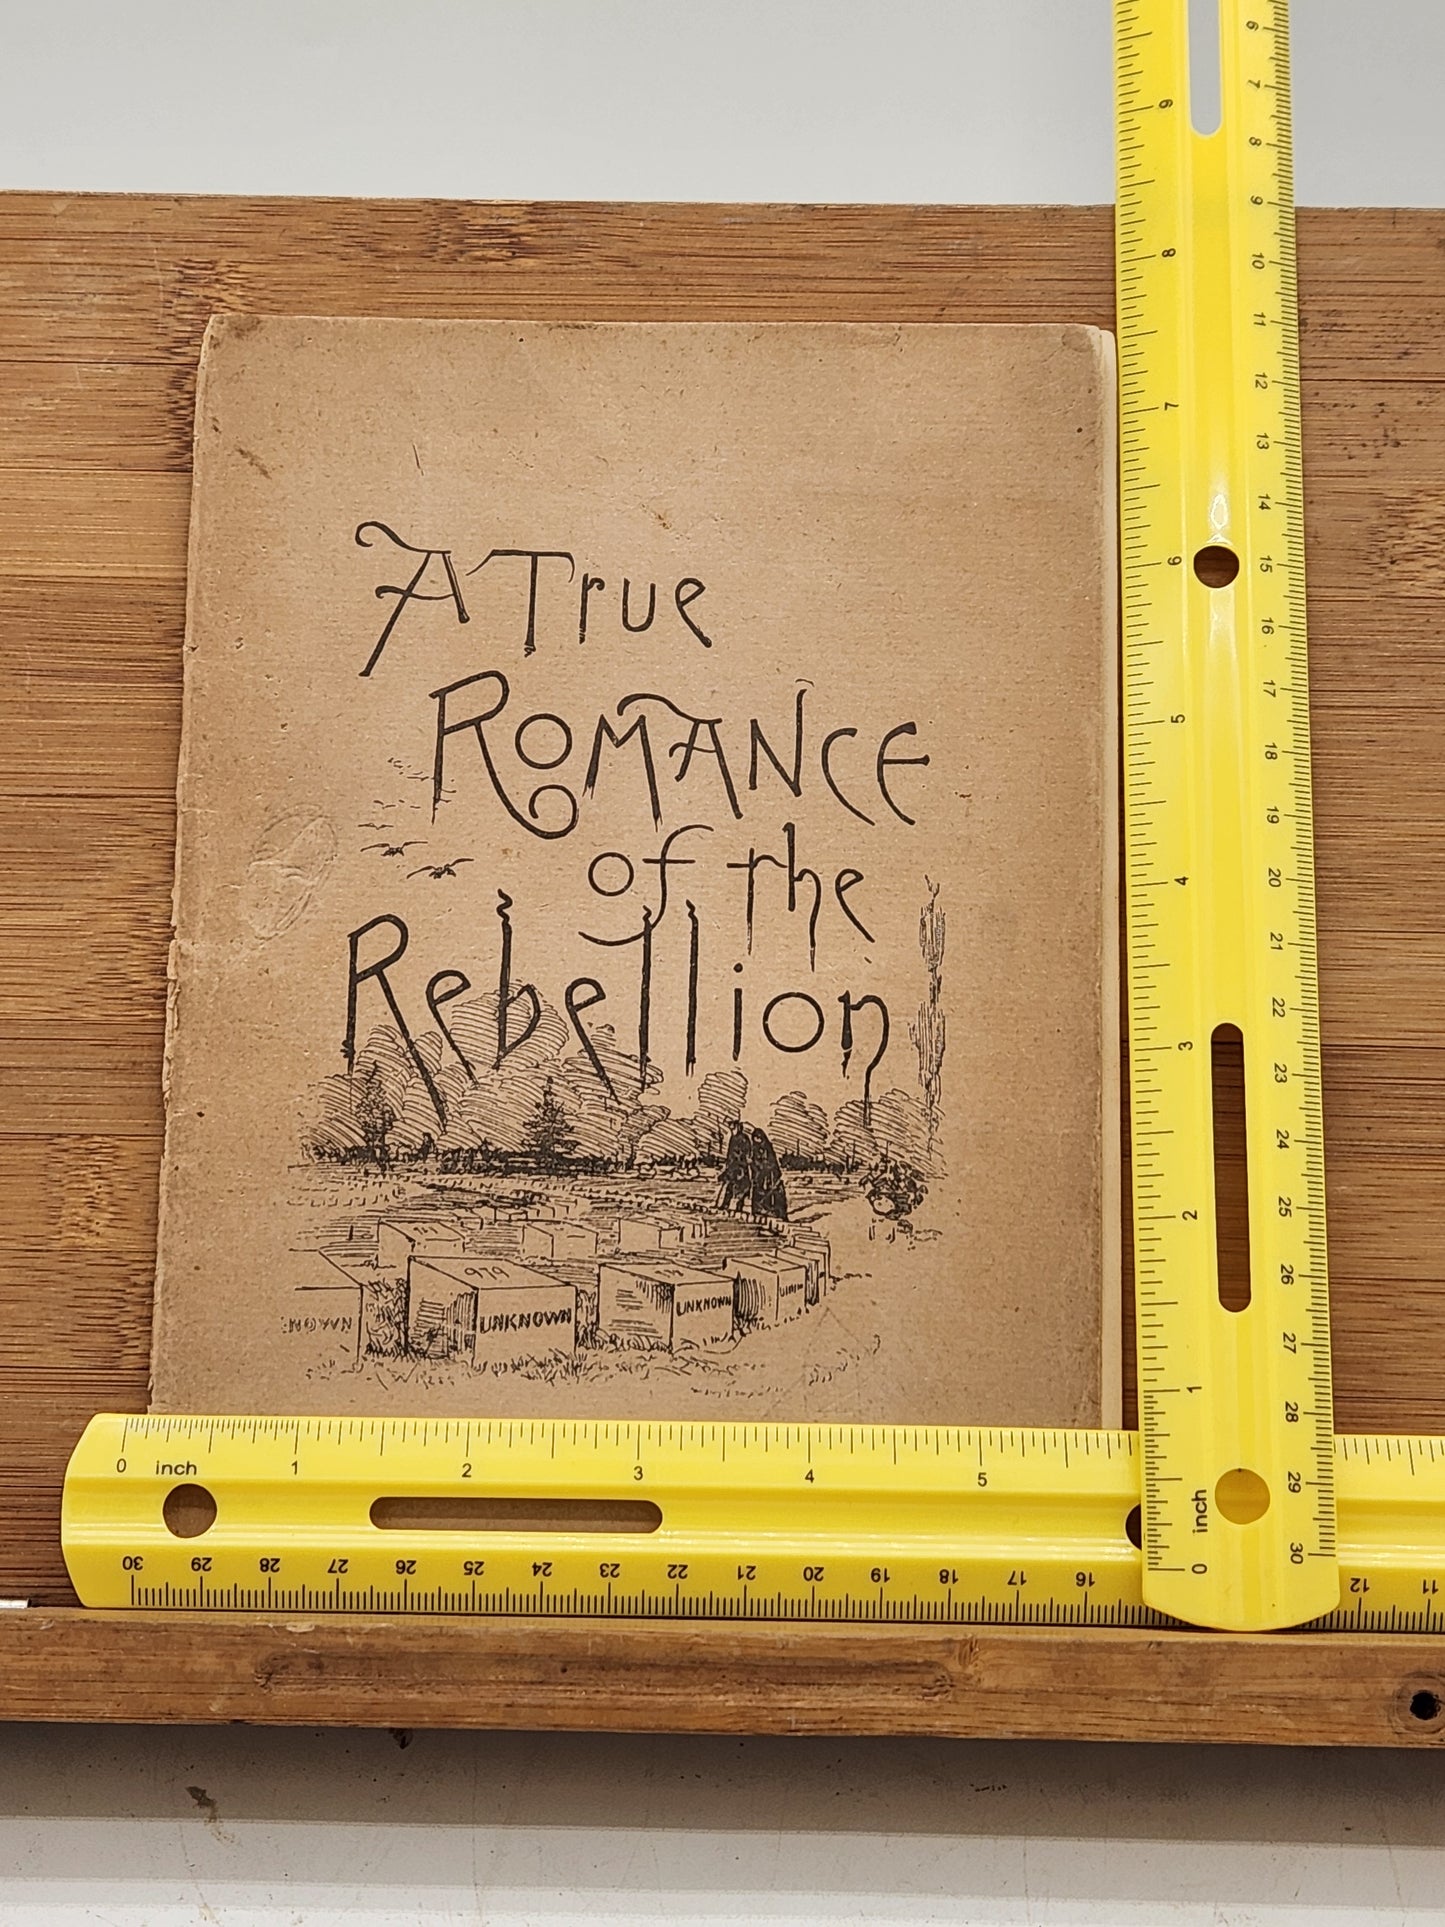 A True
Romance
of the
Rebellion
979
UNKNOWN
UNKNOWN
0 inch 1 2 3 4 5
30 29 28 27 26 25 24 23 22 21 20 19 18 17 16 12 11
6 7 8 9 10 11 12 13 14 15 16 17 18 19 20 21 22 23 24 25 26 27 28 29 30
9 8 7 6 5 4 3 2 1 0 inch